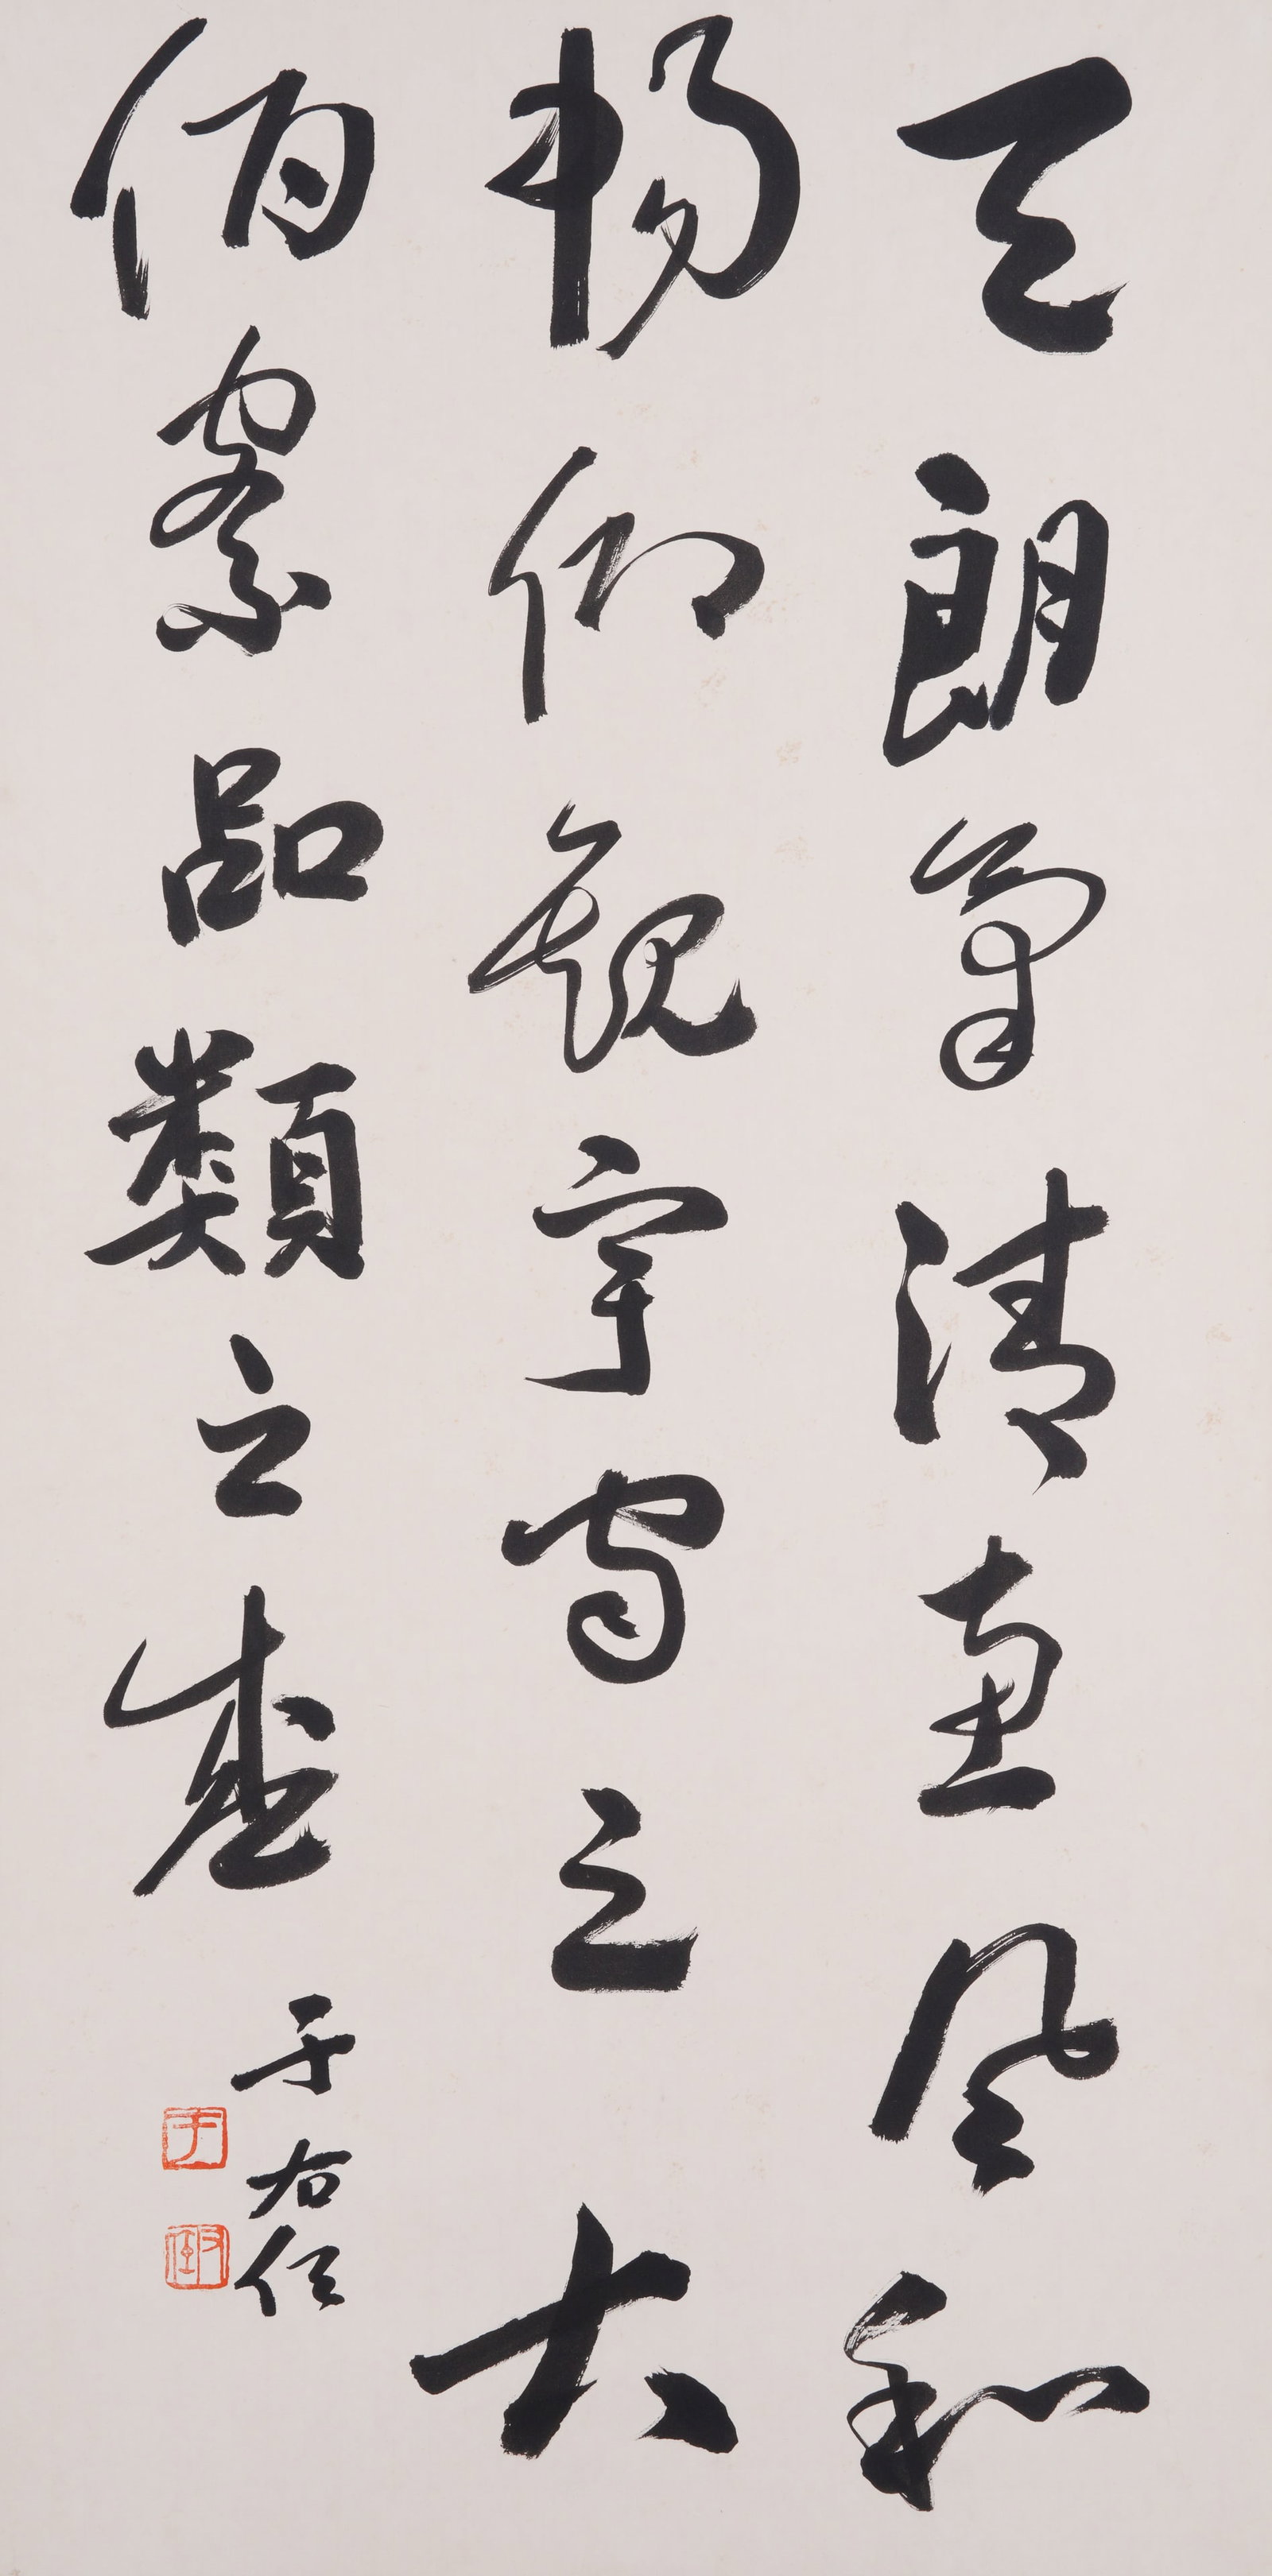 天朗氣清惠風和
暢仰觀宇宙之大
俯察品類之盛
于右任
于
右任